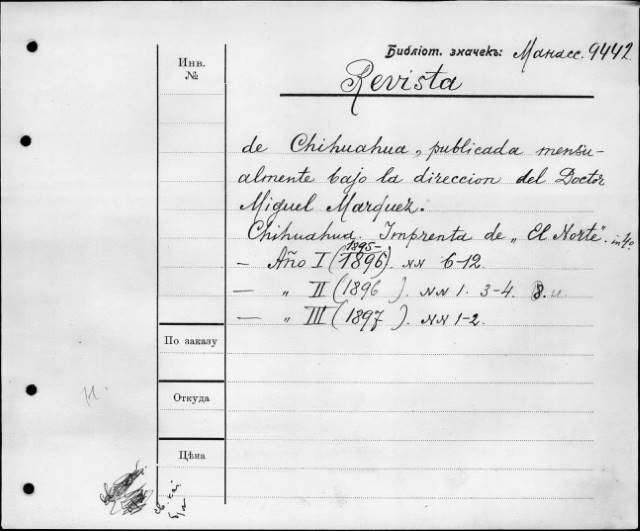 Библіот. значекъ: Манасс. 9442
Инв.
№
Revista
de Chihuahua, publicada mensu-
almente bajo la direccion del Doctor
Miguel Marquez.
Chihuahua. Imprenta de „El Norte". in 4o.
1895-
— Año I (1896). NN 6-12.
— „ II (1896 ). NN 1. 3-4. 8.
— „ III (1897 ). NN 1-2.
По заказу
Откуда
Цѣна